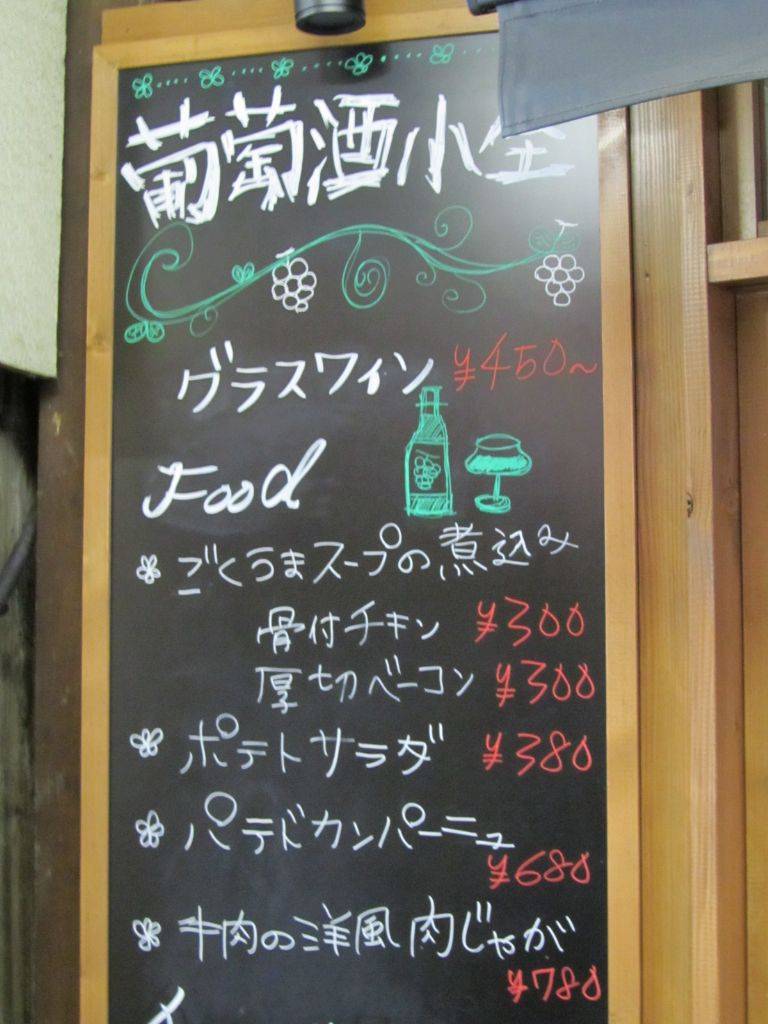 葡萄酒小
グラスワイン ¥450~
Food
ごくうまスープの煮込み
骨付チキン ¥300
厚切ベーコン ¥300
ポテトサラダ ¥380
パテドカンパーニュ
¥680
牛肉の洋風肉じゃが
¥780